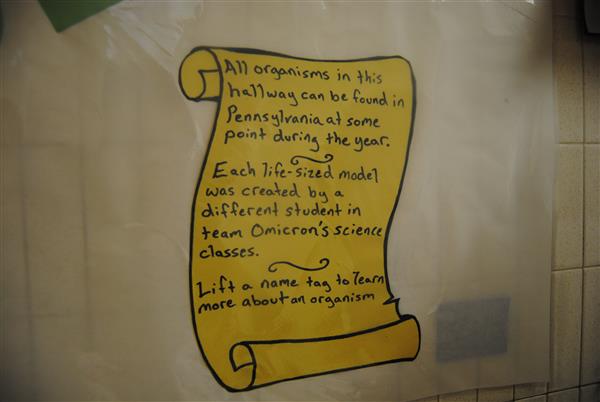 All organisms in this
hallway can be found in
Pennsylvania at some
point during the year.
Each life-sized model
was created by a
different student in
team Omicron's science
classes.
Lift a name tag to learn
more about an organism